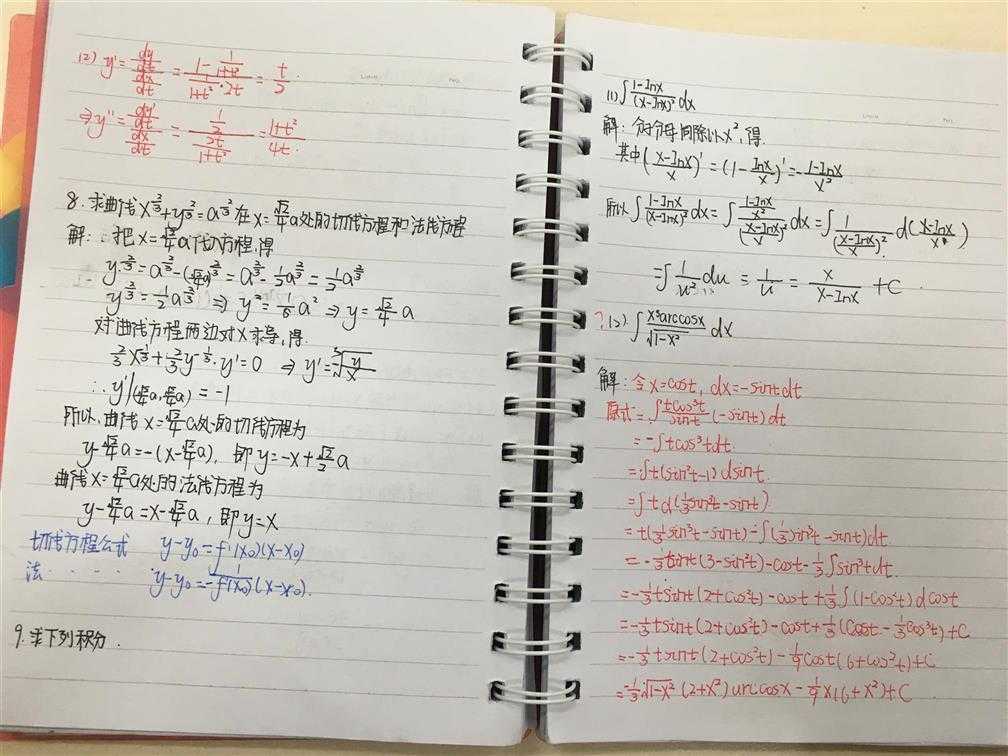 (2) y' = (dy/dt)/(dx/dt) = (1 - 1/(1+t²))/(1/(1+t²)·2t) = t/2.
⇒ y'' = (dy'/dt)/(dx/dt) = (1/2)/(2t/(1+t²)) = (1+t²)/4t.
8. 求曲线 x^(2/3)+y^(2/3)=a^(2/3) 在 x=(√2/4)a 处的切线方程和法线方程
解: 把 x=(√2/4)a 代入方程,得
y^(2/3)=a^(2/3)-((√2/4)a)^(2/3)=a^(2/3)-(1/2)a^(2/3)=(1/2)a^(2/3)
y^(2/3)=(1/2)a^(2/3) ⇒ y²=(1/8)a² ⇒ y=(√2/4)a
对曲线方程两边对X求导,得.
(2/3)x^(-1/3)+(2/3)y^(-1/3)·y'=0 ⇒ y'=∛(y/x)
∴ y'|((√2/4)a,(√2/4)a) = -1
所以,曲线 x=(√2/4)a处的切线方程为
y-(√2/4)a=-(x-(√2/4)a), 即 y=-x+(√2/2)a
曲线 x=(√2/4)a处的法线方程为
y-(√2/4)a=x-(√2/4)a, 即 y=x
切线方程公式 y-y₀=f'(x₀)(x-x₀)
法 · · · · y-y₀=-1/f'(x₀)(x-x₀).
9. 求下列积分.
(1) ∫(1-lnx)/(x-lnx)² dx
解: 分子分母同除以x², 得.
其中((x-lnx)/x)'=(1-lnx/x)'=-(1-lnx)/x²
所以∫(1-lnx)/(x-lnx)²dx=∫((1-lnx)/x²)/((x-lnx)/x)²dx=∫1/((x-lnx)/x)² d((x-lnx)/x)
=∫1/u² du = 1/u = x/(x-lnx) + C
? (2). ∫(x³arccosx)/√(1-x²) dx
解: 令 x=cost, dx=-sintdt
原式=∫(tcos³t/sint)(-sint)dt
=-∫tcos³tdt.
=∫t(sin²t-1)dsint.
=∫td(⅓sin³t-sint)
=t(⅓sin³t-sint)-∫(⅓sin³t-sint)dt
=-⅓tsint(3-sin²t)-cost-⅓∫sin³tdt.
=-⅓tsint(2+cos²t)-cost+⅓∫(1-cos²t)dcost
=-⅓tsint(2+cos²t)-cost+⅓(cost-⅓cos³t)+C
=-⅓tsint(2+cos²t)-(1/9)cost(6+cos²t)+C
=-⅓√(1-x²)(2+x²)arccosx-(1/9)x(6+x²)+C